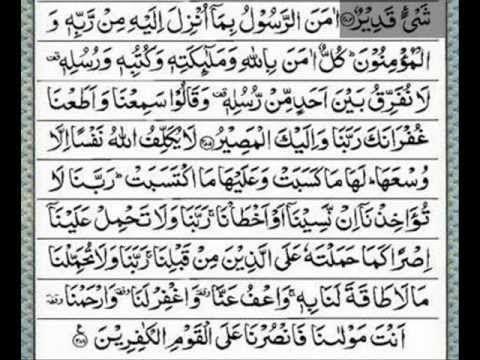 شَیْءٍ قَدِیْرٌ﴿۲۸۴﴾ اٰمَنَ الرَّسُوْلُ بِمَاۤ اُنْزِلَ اِلَیْهِ مِنْ رَّبِّهٖ وَ
الْمُؤْمِنُوْنَؕ کُلٌّ اٰمَنَ بِاللّٰهِ وَمَلٰٓىِٕکَتِهٖ وَکُتُبِهٖ وَرُسُلِهٖ۫
لَا نُفَرِّقُ بَیْنَ اَحَدٍ مِّنْ رُّسُلِهٖ۫ وَقَالُوْا سَمِعْنَا وَاَطَعْنَا
غُفْرَانَکَ رَبَّنَا وَاِلَیْکَ الْمَصِیْرُ﴿۲۸۵﴾ لَا یُکَلِّفُ اللّٰهُ نَفْسًا اِلَّا
وُسْعَهَاؕ لَهَا مَا کَسَبَتْ وَعَلَیْهَا مَا اکْتَسَبَتْؕ رَبَّنَا لَا
تُؤَاخِذْنَاۤ اِنْ نَّسِیْنَاۤ اَوْ اَخْطَاْنَاۚ رَبَّنَا وَلَا تَحْمِلْ عَلَیْنَاۤ
اِصْرًا کَمَا حَمَلْتَهٗ عَلَی الَّذِیْنَ مِنْ قَبْلِنَاۚ رَبَّنَا وَلَا تُحَمِّلْنَا
مَا لَا طَاقَةَ لَنَا بِهٖۚ وَاعْفُ عَنَّاٝ وقفة وَاغْفِرْ لَنَاٝ وقفة وَارْحَمْنَاٝ وقفة
اَنْتَ مَوْلٰىنَا فَانْصُرْنَا عَلَی الْقَوْمِ الْکٰفِرِیْنَ﴿۲۸۶﴾